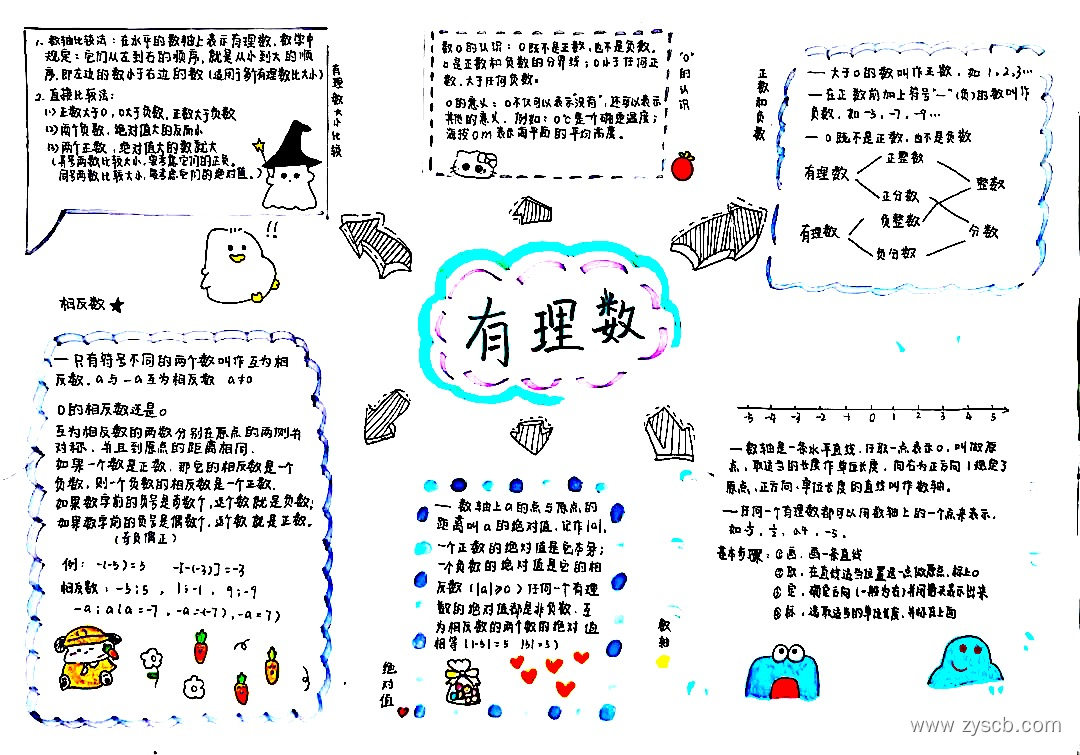 1. 数轴比较法：在水平的数轴上表示有理数，数学中
规定：它们从左到右的顺序，就是从小到大的顺
序，即左边的数小于右边的数（适用于多个有理数比大小）
2. 直接比较法：
(1)正数大于0，0大于负数，正数大于负数
(2)两个负数，绝对值大的反而小
(3)两个正数，绝对值大的数就大
（异号两数比较大小，要考虑它们的正负。
同号两数比较大小，要考虑它们的绝对值。）
有理数大小比较
!!
数0的认识：0既不是正数，也不是负数。
0是正数和负数的分界线；0小于任何正
数，大于任何负数。
0的意义：0不仅可以表示"没有"，还可以表示
其他的意义，例如：0℃是个确定温度；
海拔0m表示海平面的平均高度。
"0"的认识
正数和负数
一 大于0的数叫作正数，如 1，2，3…
一 在正数前加上符号"一"(负)的数叫作
负数，如-3，-7，-9…
一 0既不是正数，也不是负数
正整数
有理数
正分数
整数
负整数
有理数
分数
负分数
有理数
相反数★
一 只有符号不同的两个数叫作互为相
反数。a与-a互为相反数 a≠0
0的相反数还是0
互为相反数的两数分别在原点的两侧并
对称，并且到原点的距离相同.
如果一个数是正数，那它的相反数是一个
负数，则一个负数的相反数是一个正数.
如果数字前的负号是奇数个，这个数就是负数；
如果数字前的负号是偶数个，这个数就是正数。
（奇负偶正）
例：-(-5)=5 -[-(-3)]=-3
相反数：-5;5 1;-1 9;-9
-a；a(a=-7，-a=-(-7)，-a=7)
一 数轴上a的点与原点的
距离叫a的绝对值，记作|a|.
一个正数的绝对值是它本身；
一个负数的绝对值是它的相
反数（|a|≥0）任何一个有理
数的绝对值都是非负数，互
为相反数的两个数的绝对值
相等（|-5|=5 |5|=5）
绝对值
数轴
-5 -4 -3 -2 -1 0 1 2 3 4 5
一数轴是一条水平直线，任取一点表示0，叫做原
点，取适当的长度作单位长度，向右为正方向（规定了
原点，正方向，单位长度的直线叫作数轴。
一任何一个有理数都可以用数轴上的一个点来表示.
基本步骤：①画，画一条直线
②取，在直线适当位置选一点做原点，标上0
③定，确定方向（一般为右）并用箭头表示出来
www.zyscb.com